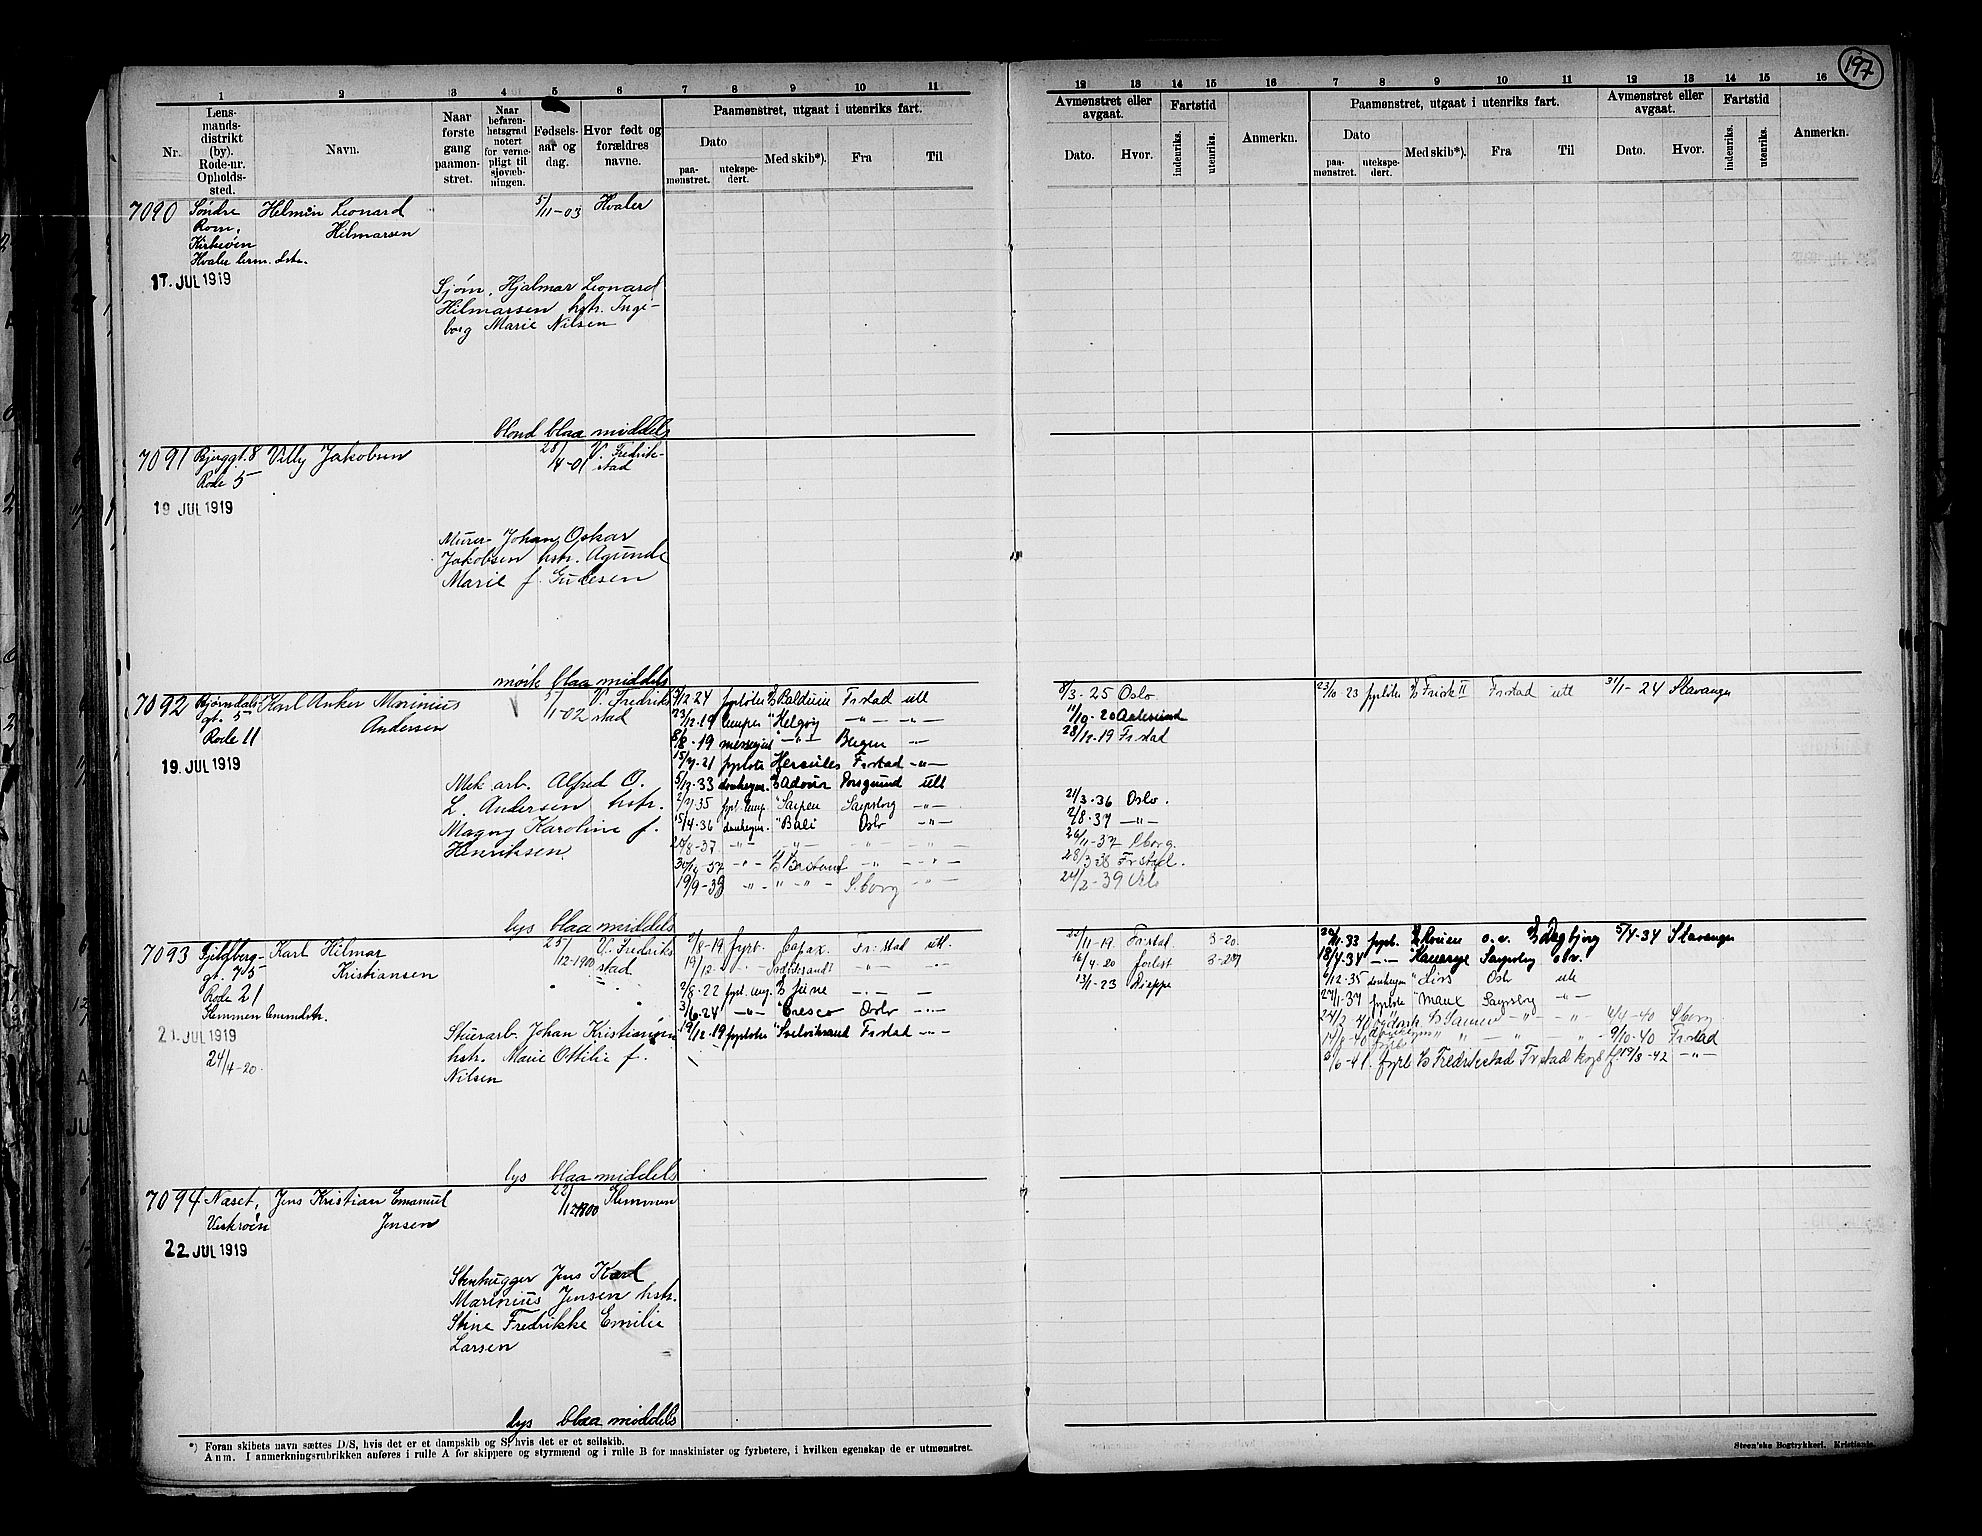 197
1 2 3 4 5 6 7 8 9 10 11
12 13 14 15 16 7 8 9 10 11 12 13 14 15 16
Nr.
Lens-
mands-
distrikt
(by).
Rode-nr.
Opholds-
sted.
Navn.
Naar
første
gang
paamøn-
stret.
Naar
befaren-
hetsgrad
notert
for verne-
pligt til
sjøvæb-
ningen.
Fødsels-
aar og
dag.
Hvor født og
forældres
navne.
Paamønstret, utgaat i utenriks fart.
Dato
paa-
mønstret.
utekspe-
dert.
Med skib*).
Fra
Til
Avmønstret eller
avgaat.
Dato.
Hvor.
Fartstid
indenriks.
utenriks.
Anmerkn.
Paamønstret, utgaat i utenriks fart.
Dato
paa-
mønstret.
utekspe-
dert.
Med skib*).
Fra
Til
Avmønstret eller
avgaat.
Dato.
Hvor.
Fartstid
indenriks.
utenriks.
Anmerkn.
7090 Søndre Helmin Leonard 5/11-03 Hvaler
Rom, Hilmarsen
Kirkeøen
Hvaler
17. JUL 1919
Sjøm. Hjalmar Leonard
Hilmarsen hstr. Inge-
borg Marie Nilsen
blond blaa middels
7091 Bjerggt. 8 Villy Jakobsen 28/4-01 V. Fredrik-
Rode 5 stad
19 JUL 1919
Murer Johan Oskar
Jakobsen hstr. Agunde
Marie f.
mørk blaa middels
7092 Bjørndals Karl Anker Marinius 5/1-02 V. Fredrik
gt. 5 Andersen stad
Rode 11
19. JUL 1919
Mek arb. Alfred O.
L. Andersen hstr.
Magny Karoline f.
Henriksen.
lys blaa middels
12-24 fyrbøter Balduin Frstad utl
23/12-19 lemper " Helgøy -"- -"-
8/8-19 -"- Bergen -"-
21 fyrbøter Hercules Frstad -"-
5/12-33 donkeym. Adour Porsgrund utl
35 fyrb. lemp. " Sarpen Sarpsborg -"-
15/4-36 donkeym. " Bali Oslo -"-
8-37 -"- -"- -"- -"-
-"- -"- -"-
19/9-38 -"- " -"- S.borg -"-
8/3-25 Oslo
20 Aalesund
28/12-19 Frstad
21/3-36 Oslo.
2/8-37 -"-
26/11-37 Sborg.
28/3-38 Frstad.
24/2-39 Oslo
23/10 23 fyrbøter Frisk II Frstad utl 31/1-24 Stavanger
7093 Fjeldberg- Karl Hilmar 25/12-1900 V. Fredrik
gt. 75 Kristiansen stad
Rode 21
Glemmen
21 JUL 1919
24/4-20.
Stuerarb. Johan Kristiansen
hstr. Marie Ottilie f.
Nilsen
lys blaa middels
8-19. fyrb. Capax. Fr:stad utl.
19/12 - " - -"- -"-
2/8-22 fyrb. June -"- -"-
3/6-24 -"- Cresco Oslo -"-
19/12-19 fyrbøter Frstad -"-
11-19. Frstad 3-20.
16/4-20 forlist
13/1-23 Dieppe
33 fyrb. Rouen o.v. Dagbjørg 5/4-34 Stavanger
18/4-34 -"- Sarpsborg o.v.
12-35 donkeym Oslo utl
27/1-37 fyrbøter Sarpsborg -"-
24/2-40 -"- 4-40 Sborg
8-40 9/10-40 Frstad
6-41. fyrb Fredrikstad Frstad 8-42 -"-
7094 Næset, Jens Kristian Emanuel 22/12 1900 Glemmen
Vesterøen Jensen
22. JUL 1919
Stenhugger Jens Karl
Marinius Jensen hstr.
Stine Fredrikke Emilie
Larsen
lys blaa middels
*) Foran skibets navn sættes D/S, hvis det er et dampskib og S, hvis det er et seilskib.
Anm. I anmerkningsrubrikken anføres i rulle A for skippere og styrmænd og i rulle B for maskinister og fyrbøtere, i hvilken egenskap de er utmønstret.
Steen'ske Bogtrykkeri. Kristiania.